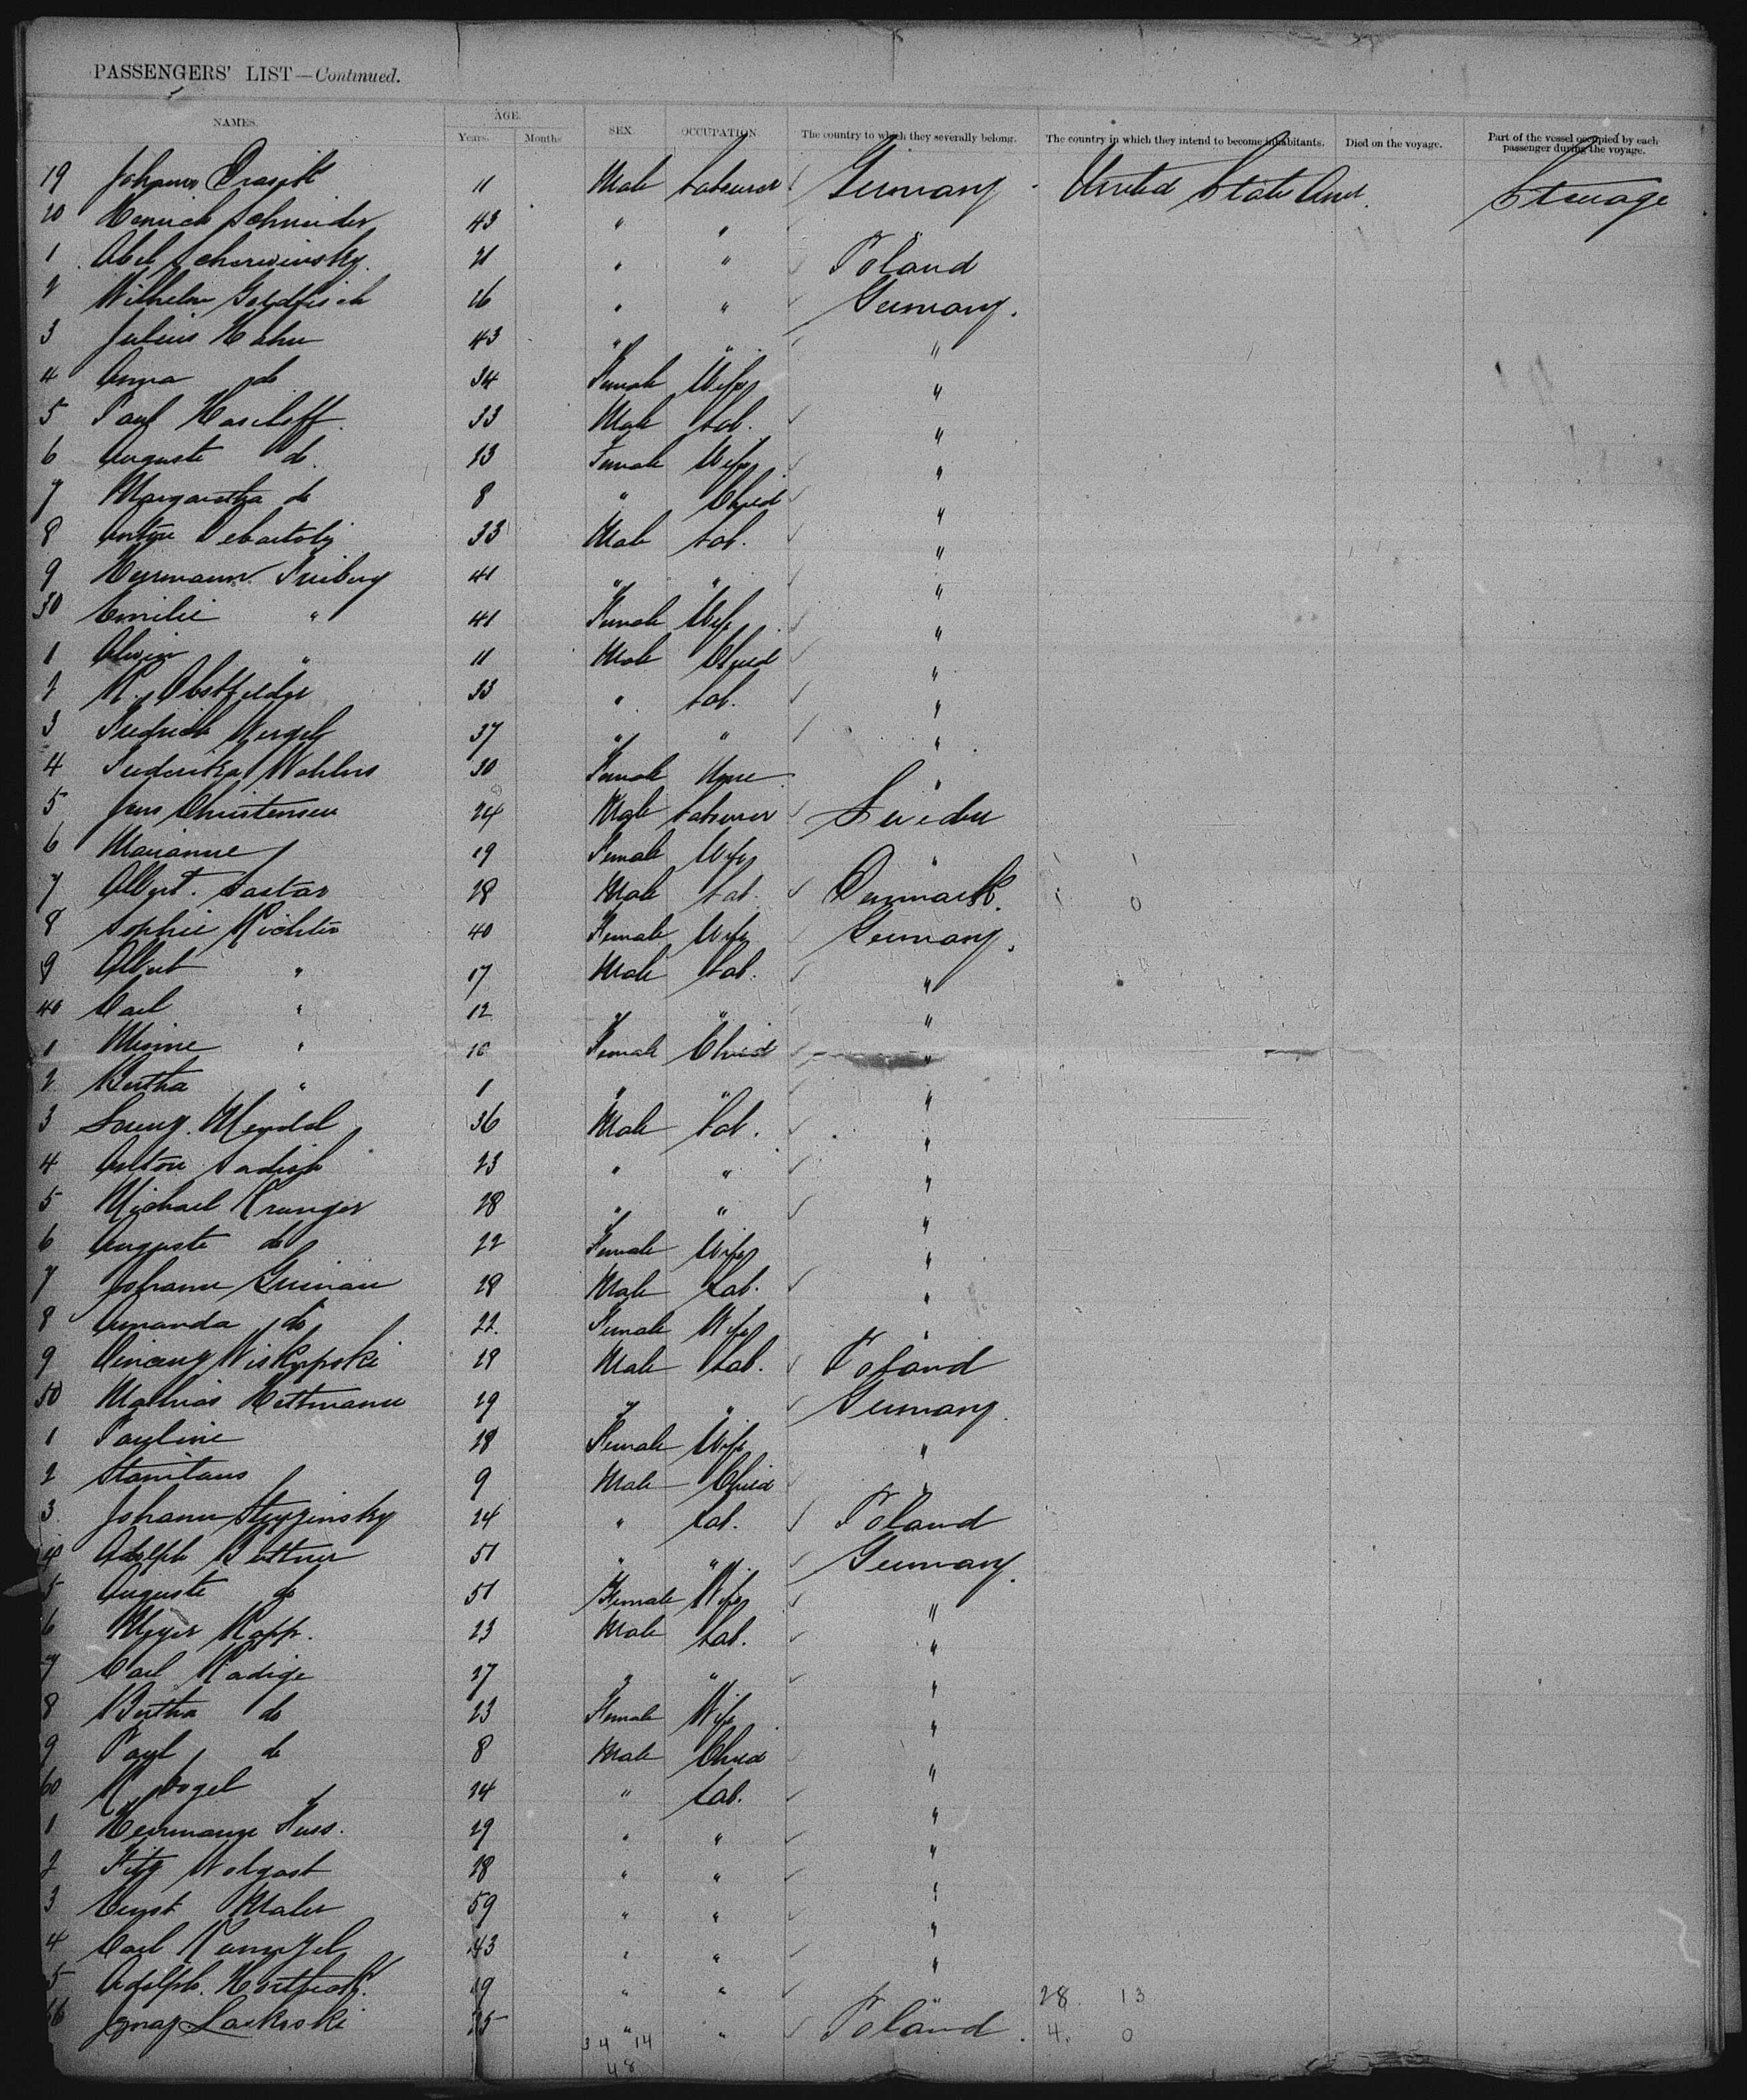 PASSENGERS' LIST—Continued.
NAMES. AGE. Years. Months SEX. OCCUPATION. The country to which they severally belong. The country in which they intend to become inhabitants. Died on the voyage. Part of the vessel occupied by each passenger during the voyage.
19 Johann 11 Male Labourer Germany United States Amr. Steerage
20 Heinrich Schneider 43 " "
1 Abel Scherwinsky 21 " " Poland
2 Wilhelm Goldfisch 26 " " Germany.
3 Julius Hahn 43 " " "
4 Anna do 34 Female Wife "
5 Paul 33 Male Lab. "
6 Auguste do. 23 Female Wife "
7 Margaretha do 8 " Child "
8 Anton 33 Male Lab. "
9 Hermann Freiberg 41 " " "
30 Emilie " 41 Female Wife "
1 Alwin " 11 Male Child "
2 R. Abstfelder 33 " Lab. "
3 Friedrich 37 " " "
4 Friederika Wohlers 30 Female "
5 Jens Christensen 24 Male Labourer Sweden
6 Marianne 19 Female Wife "
7 Albert. 28 Male Lab. Denmark. 0
8 Sophie Richter 40 Female Wife Germany.
9 Albert " 17 Male Lab. "
40 Carl " 12 " " "
1 Minne " 10 Female Child "
2 Bertha " 1 " " "
3 Mendel 36 Male Lab. "
4 Anton 23 " " "
5 Michael Krunger 28 " " "
6 Auguste do 22 Female Wife "
7 Johann Grunau 28 Male Lab. "
8 Amanda do 22. Female Wife "
9 29 Male Lab. Poland
50 Mathias Hettmann 29 " " Germany.
1 Pauline 28 Female Wife "
2 Stanitaus 9 Male Child "
3. Johann 24 " Lab. Poland
4 Adolph Buttner 51 " " Germany.
5 Auguste do 51 Female Wife "
6 Meyer Kapp. 23 Male Lab. "
7 Carl Radige 27 " " "
8 Bertha do 23 Female Wife "
9 Paul do 8 Male Child "
60 R. Vogel 24 " Lab. "
1 Herrmann Fuss. 29 " " "
2 Fitz Wolgast 28 " " "
3 Ernst Maler 59 " " "
4 Carl 43 " " "
5 Adolph. 19 " " " 28. 13
66 Ignaz Laskoski 25 " " Poland. 4. 0
34 14
48